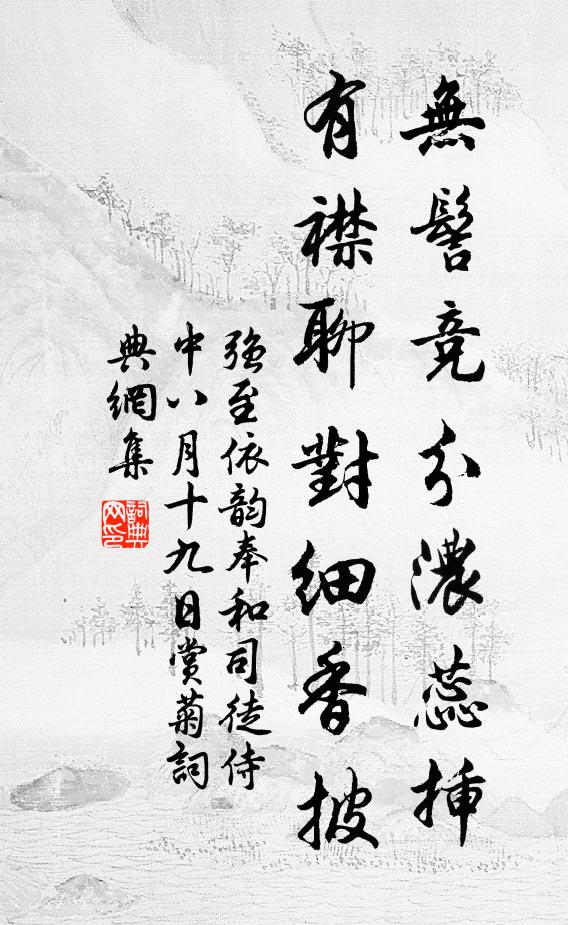 無髻竞分濃蕊揷
有襟聊對細香披
强至依韵奉和司徒侍
中八月十九日赏菊詞
典網集
詞典
网印